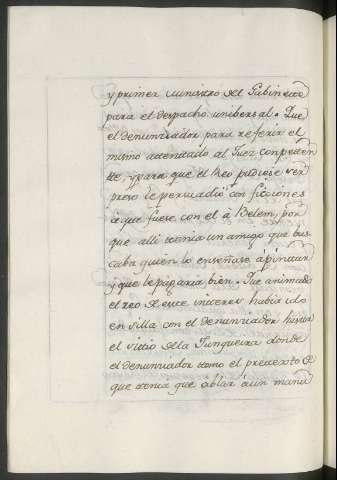 y primer Ministro del Gabinette
para el despacho unibersal. Que
el denunciador para referir el
mismo attentado al Juez conpeten
te, y para que el Reo pudiese ser
preso le persuadió con ficciones
à que fuese con el à Belem, por
que alli ttenia un amigo que bus
caba quien lo enseñase àpintar
y que le pagaria bien. Que animado
el reo de este interes habia ido
en silla con el denunciador hasta
el sittio de la Junqueira donde
el denunciador ttomo el pretexto de
que ttenia que ablar àun manu